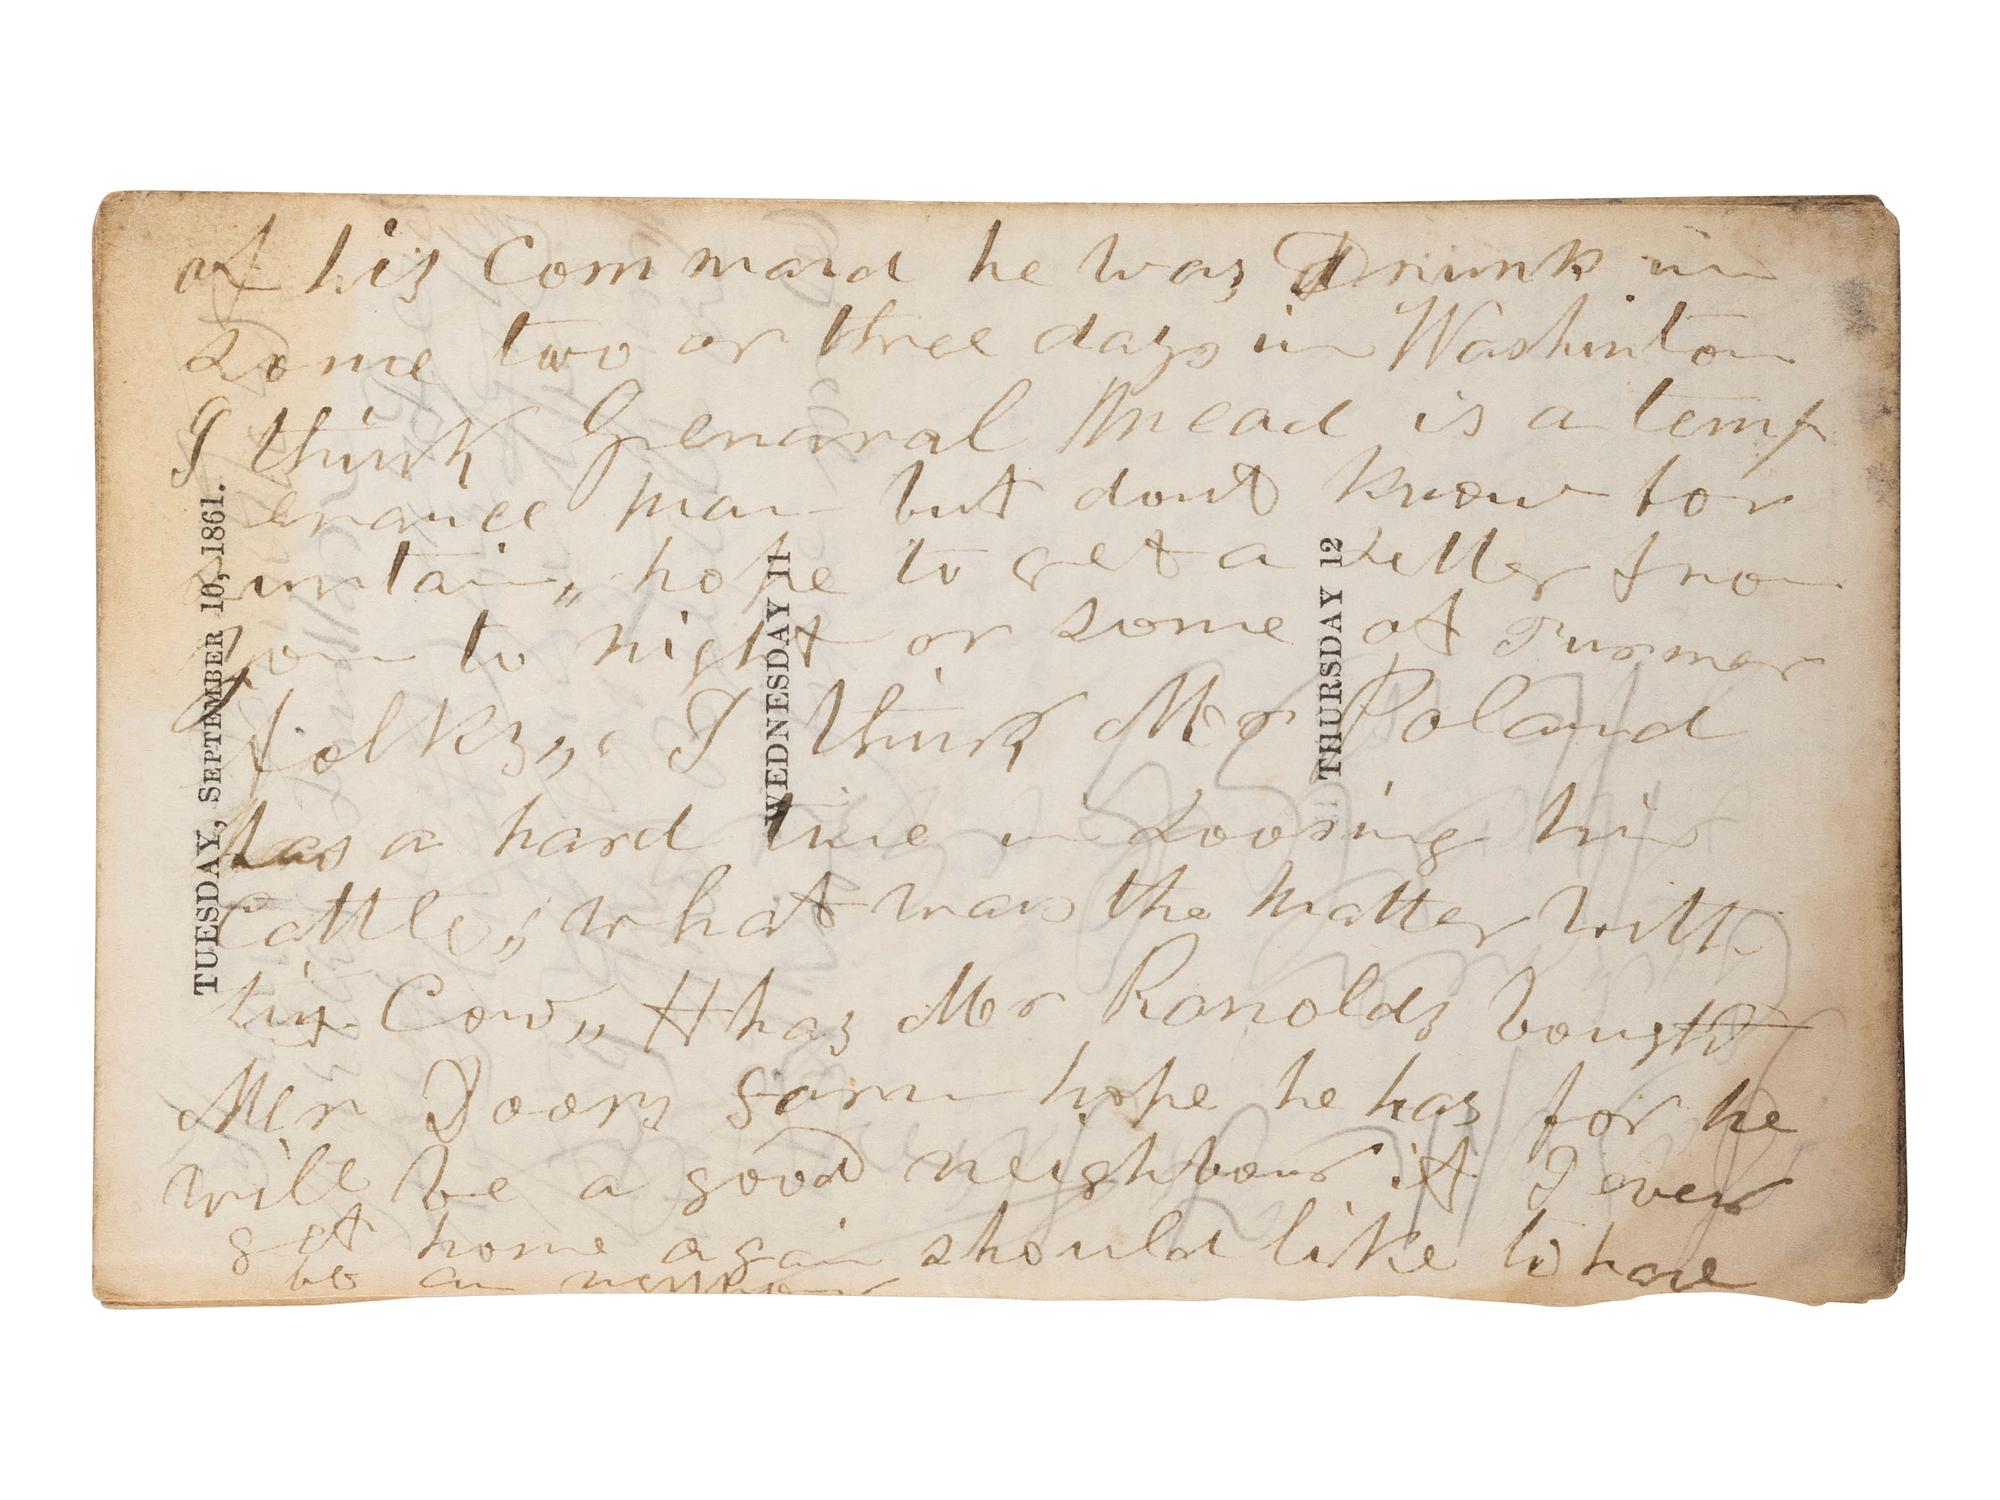 of his Command he was Drunk in
some two or three days in Washinton
I think Genaral Mead is a temp
erance man but dont know for
suntain,, hope to get a Letter from
you to night or some of Turner
folks,, I think Mr Poland
has a hard time in Loosing his
Cattle,, what was the matter with
his Cow,, H has Mr Ranolds bought
Mr Doors farm hope he has for he
will be a good neighbour if I ever
get home again should like to have
TUESDAY, SEPTEMBER 10, 1861.
WEDNESDAY 11
THURSDAY 12